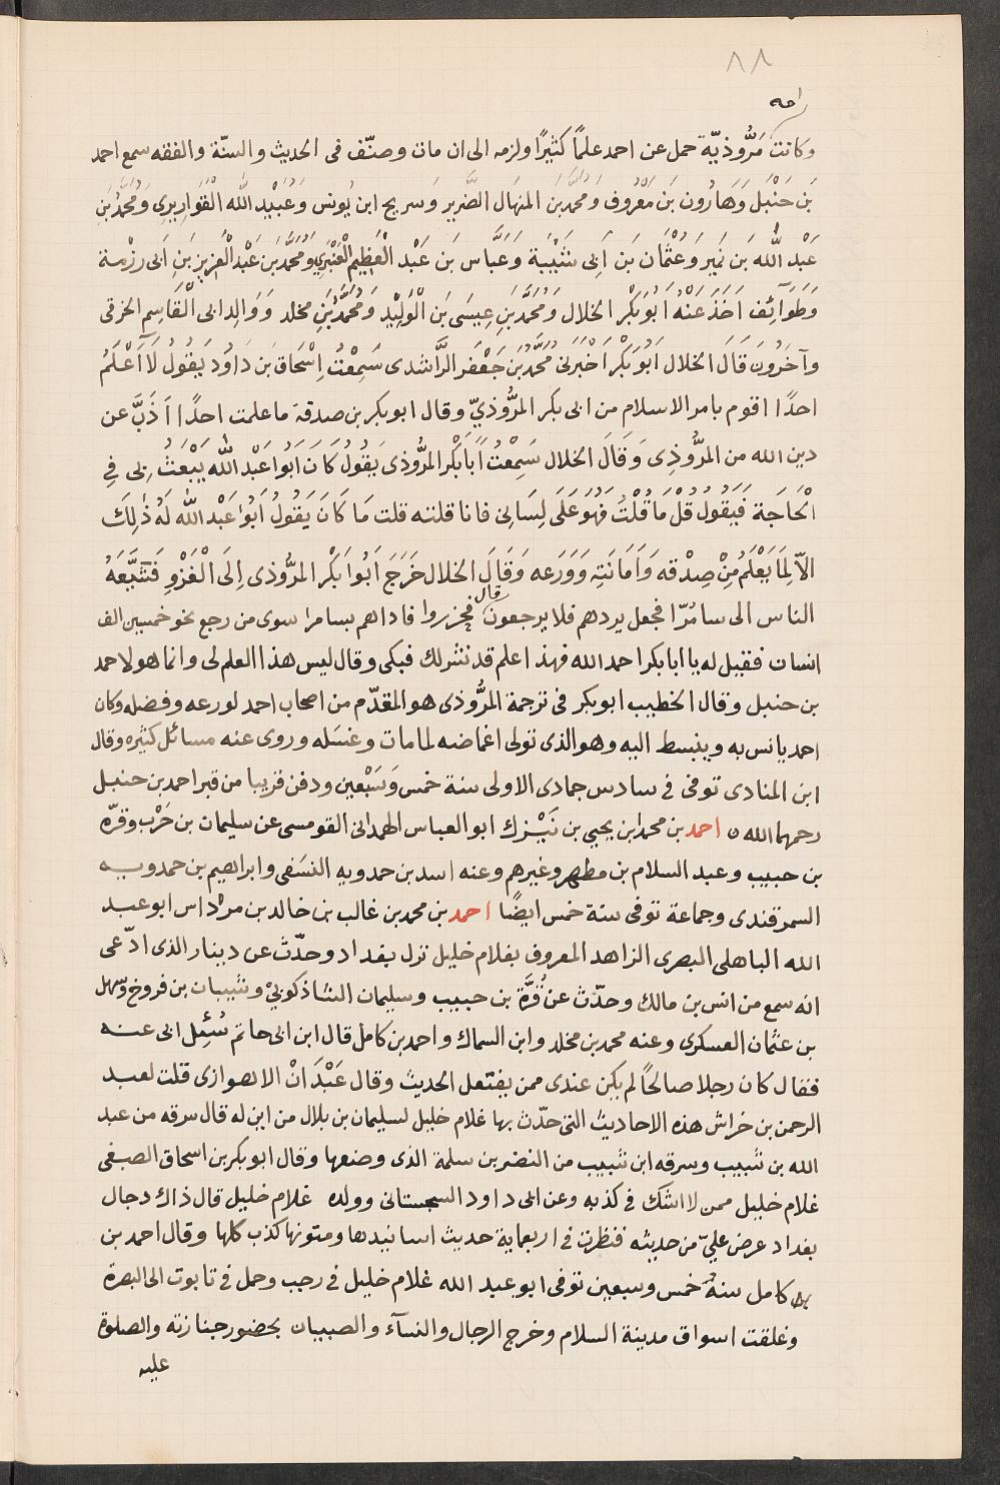 ٨٨
امه
وكانت مَرُّوذيّة حمل عن احمد علمًا كثيرًا ولزمه الى ان مات وصنّف فى الحديث والسنّة والفقه سمع احمد
بَن حَنْبَل وَهَارُون بَن مَعْرُوف وَمُحمد بَن المنهَال الضَّرِير وَسريج ابن يُونس وَعُبَيْد الله الْقَوَارِيرِى وَمُحَمَّد بَن
عَبْد الله بَن نُمَير وَعُثْمَان بَن أَبِى شَيْبَة وَعَبَّاس بَن عَبْد الْعَظِيم الْعَنْبَرِي وَمُحَمَّد بَن عَبْد الْعَزِيز بَنِ أَبى رزْمة
وَطَوَآئِف اَخَذَ عَنْهُ اَبُو بَكْر الخلال وَمُحَمَّد بَنِ عِيسَى بَن الْوَلِيْد وَمُحَمَّد بَنِ مخلد وَوَالِد ابى الْقَاسِم الخرقى
وآخَرُونَ قَالَ الخلال اَبُو بَكْر اَخْبَرنى مُحَمَّد بَن جَعْفَر الرَّاشدى سَمِعْتُ اِسْحَاق بَن دَاوُد يَقُولُ لَآ اَعْلَمُ
احدًا اقوم بامر الاسلام من ابى بكر المرُّوذيّ وقال ابو بكر بن صدقة ما علمت احدًا اَذَبَّ عن
دين الله من المرُّوذِى وَقَالَ الخلال سَمِعْتُ اَبَا بَكْر المرُّوذى يَقُولُ كَانَ اَبُوا عَبْد الله يَبْعَثُ بِى فِى
الْحَاجَة فَيَقُولُ قُلْ مَا قُلْتُ فَهُوَ عَلَى لِسَانِى فانا قلته قلت مَا كَانَ يَقُولُ اَبُوا عَبْد الله لَهُ ذٰلِكَ
الاّ لِمَا يَعْلَمُ مِنْ صِدْقه وَاَمَانَتِه وَوَرَعه وَقَالَ الخلال خَرَجَ اَبُوا بَكْر المرُّوذى اِلَى الْغَزْوِ فَشَيَّعَهُ
الناس الى سامُرّا فجعل يردهم فلا يرجعون قال فحزروا فاذاهم بسامرا سوى من رجع نحو خمسين الف
انسان فقيل له يا ابا بكر احمد الله فهذا علم قد نشر لك فبكى وقال ليس هذا العلم لى وانما هو لاحمد
بن حنبل وقال الخطيب ابو بكر فى ترجمة المرُّوذى هو المقدّم من اصحاب احمد لورعه وفضله وكان
احمد يانس به وينبسط اليه وهو الذى تولى اغماضه لما مات وغسَله وروى عنه مسائل كثيره وقال
ابن المنادى توفى فى سادس جمادى الاولى سنة خمس وَسَبْعين ودفن قريبا من قبر احمد بن حنبل
رحمهما الله ه احمد بن محمد ابن يحيى بن نَيْزك ابو العباس الهمدانى القومسى عن سليمان بن حَرْب وقرّه
بن حبيب وعبد السلام بن مطهر وغيرهم وعنه اسد بن حمدويه النسَفى وابراهيم بن حمدويه
السمرقندى وجماعة توفى سنة خمس ايضًا احمد بن محمد بن غالب بن خالد بن مرداس ابو عبد
الله الباهلى البصرى الزاهد المعروف بغلام خليل نزل بغداد وحدّث عن دينار الذى ادّعى
انه سمع من انس بن مالك وحدّث عن قُرَّة بن حبيب وسليمان الشاذكونيْ وشيبان بن فروخ وسهل
بن عثمان العسكرى وعنه محمد بن مخلد وابن السماك واحمد بن كامل قال ابن ابى حاتم سُئِل ابى عنه
فقال كان رجلا صالحًا لم يكن عندى ممن يفتعل الحديث وقال عَبْدَانْ الاهوازى قلت لعبد
الرحمن بن خراش هذه الاحاديث التى حدّث بها غلام خليل لسليمان بن بلال من اين له قال سرقه من عبد
الله بن شبيب وسرقه ابن شبيب من النضر بن سلمة الذى وضعها وقال ابو بكر بن اسحاق الصبغى
غلام خليل ممن لا اشك فى كذبه وعن ابى داود السجستانى وولده غلام خليل قال ذاك دجال
بغداد عرض عليّ من حديثه فنظرت فى اربعماية حديث اسانيدها ومتونها كذب كلها وقال احمد بن
كامل سنة خمس وسبعين توفى ابو عبد الله غلام خليل فى رجب وحمل فى تابوت الى البصرة
وغلقت اسواق مدينة السلام وخرج الرجال والنسآء والصبيان بحضور جنازته والصلوة
عليه